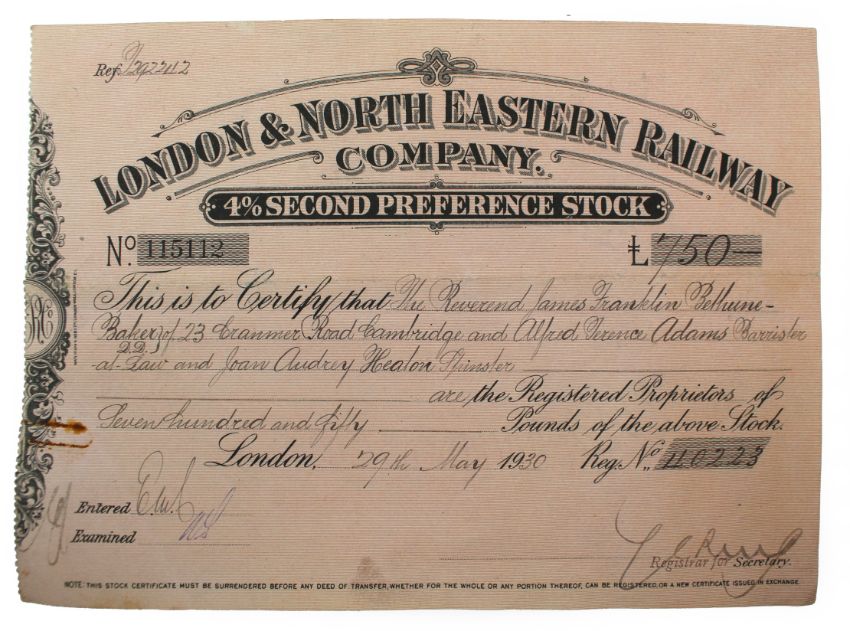 Ref.
LONDON & NORTH EASTERN RAILWAY
COMPANY.
4% SECOND PREFERENCE STOCK
No. 115112 £ 750—
This is to Certify that The Reverend James Franklin Bethune-
Baker of 23 Cranmer Road Cambridge and Alfred Terence Adams Barrister
D.D.
at-Law and Joan Audrey Heaton Spinster
are the Registered Proprietors of
Seven hundred and fifty Pounds of the above Stock.
London, 29th May 1930 Reg. No. 110223
Entered
Examined
Registrar for Secretary.
NOTE. THIS STOCK CERTIFICATE MUST BE SURRENDERED BEFORE ANY DEED OF TRANSFER, WHETHER FOR THE WHOLE OR ANY PORTION THEREOF, CAN BE REGISTERED, OR A NEW CERTIFICATE ISSUED IN EXCHANGE.